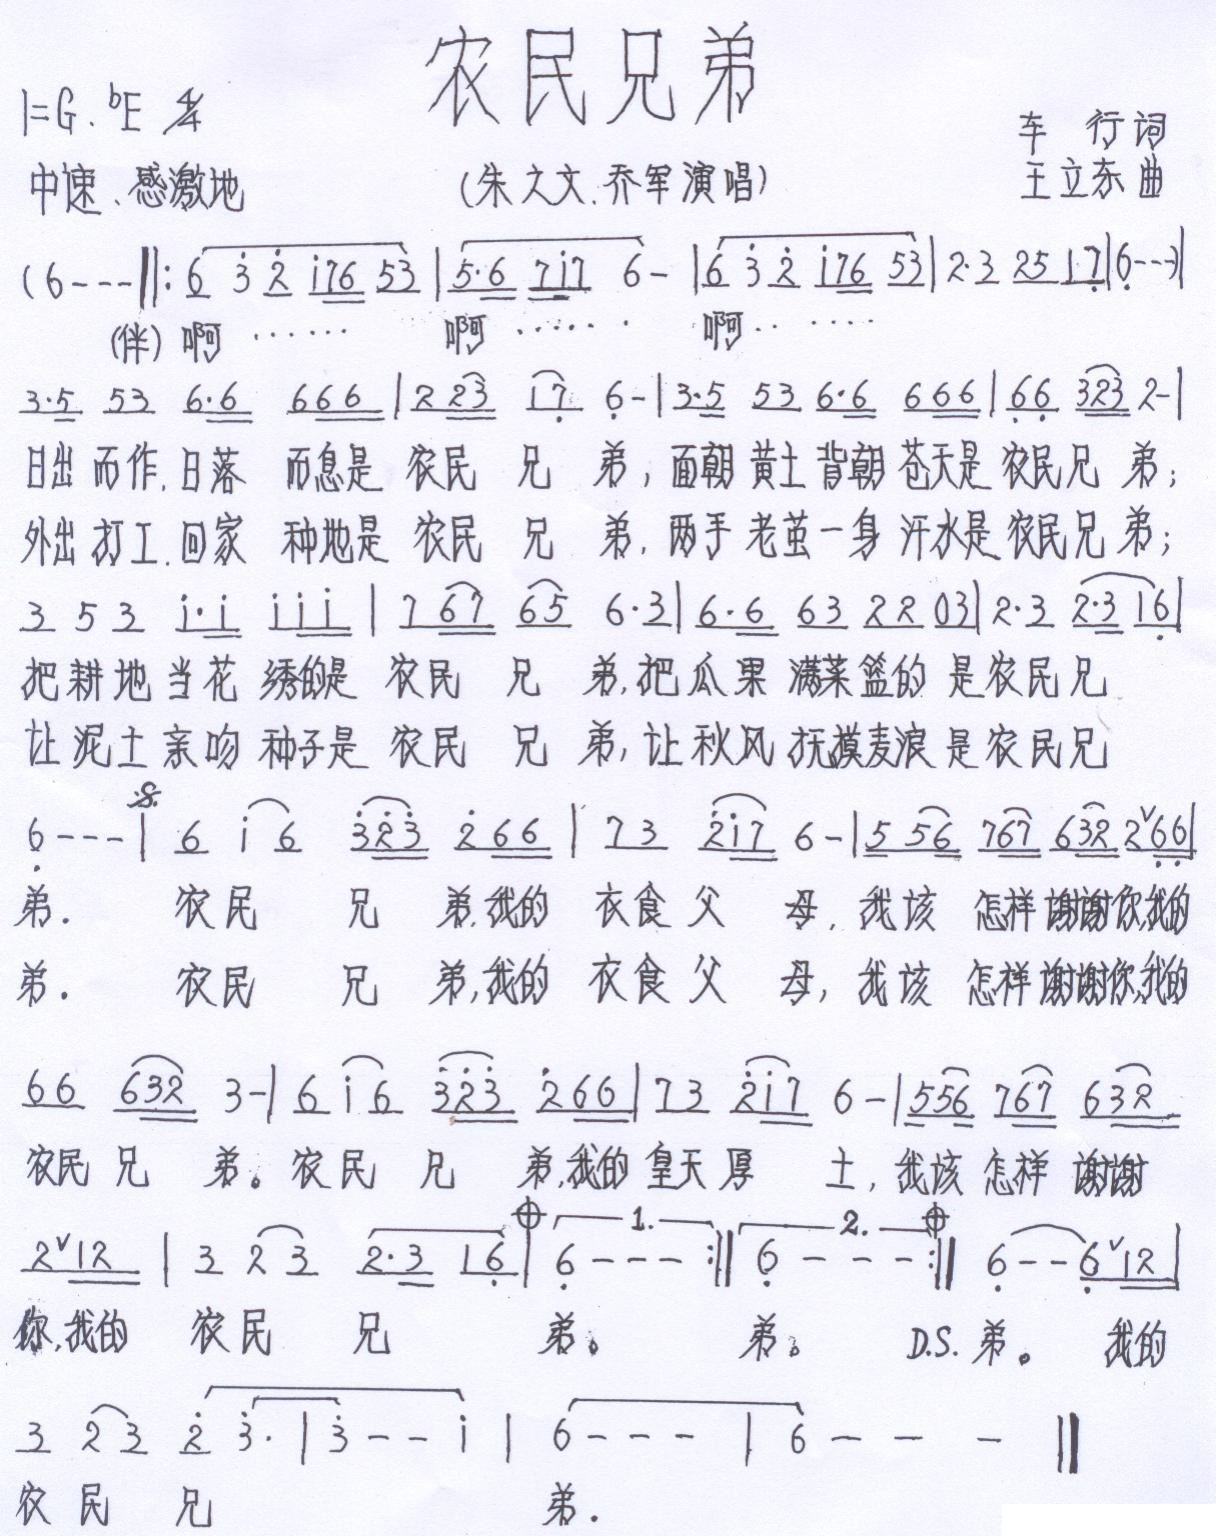 农民兄弟
1=G. ♭E 4/4
车 行 词
中速、感激地
(朱之文.乔军演唱)
王立东 曲
(6 - - - ‖: 6 3̇ 2̇ i76 53 | 5·6 7i7 6 - | 6 3̇ 2̇ i76 53 | 2·3 25 1·7̣ | 6̣ - - -) |
(伴) 啊 …… 啊 …… 啊 ……
3·5 53 6·6 666 | 2 23 17̣ 6̣ - | 3·5 53 6·6 666 | 6̣6̣ 323 2 - |
日出 而作.日落 而息是 农民 兄 弟; 面朝 黄土 背朝 苍天是 农民兄 弟;
外出 打工.回家 种地是 农民 兄 弟.两手 老茧一身 汗水是 农民兄 弟;
3 5 3 i·i iii | 7 67 65 6·3 | 6·6 63 22 03 | 2·3 2·3 16̣ |
把耕地当花 绣的是 农民 兄 弟,把瓜果 满菜篮的 是农民兄
让泥土亲吻 种子是 农民 兄 弟,让秋风 抚摸麦浪 是农民兄
6̣ - - - | 𝄋 6 i 6 3̇2̇3̇ 2̇66 | 73 2̇i7 6 - | 5 56 767 632 2ᵛ6̣6̣ |
弟. 农民 兄 弟,我的 衣食父 母,我该 怎样谢谢你,我的
弟. 农民 兄 弟,我的 衣食父 母,我该 怎样谢谢你,我的
66 632 3 - | 6 i 6 3̇2̇3̇ 2̇66 | 73 2̇i7 6 - | 556 767 632
农民兄 弟。农民 兄 弟,我的皇天厚 土,我该 怎样 谢谢
2ᵛ12 | 3 2 3 2·3 16̣ | 𝄌 1. 6̣ - - - :‖ 2. 6̣ - - - 𝄌 :‖ 6̣ - - 6̣ᵛ12 |
你,我的 农民 兄 弟。 弟。 D.S. 弟。 我的
3 2 3 2̇ 3̇· | 3̇ - - i | 6 - - - | 6 - - - ‖
农民 兄 弟.